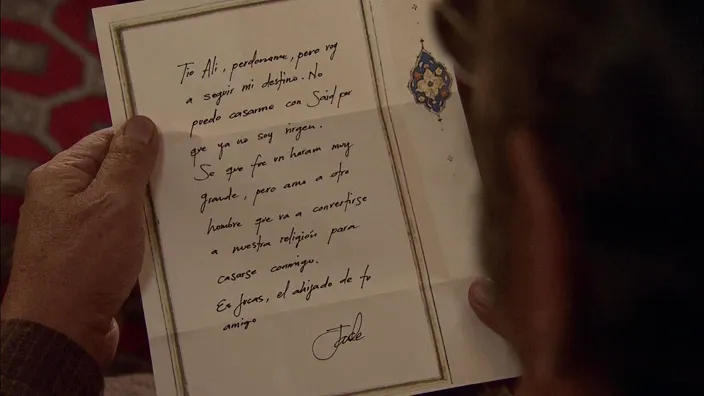 Tio Ali, perdoname, pero voy
a seguir mi destino. No
puedo casarme con Said por
que ya no soy virgen.
Se que fue un haram muy
grande, pero amo a otro
hombre que va a convertirse
a nuestra religión para
casarse conmigo.
Es Lucas, el ahijado de tu
amigo
Jade